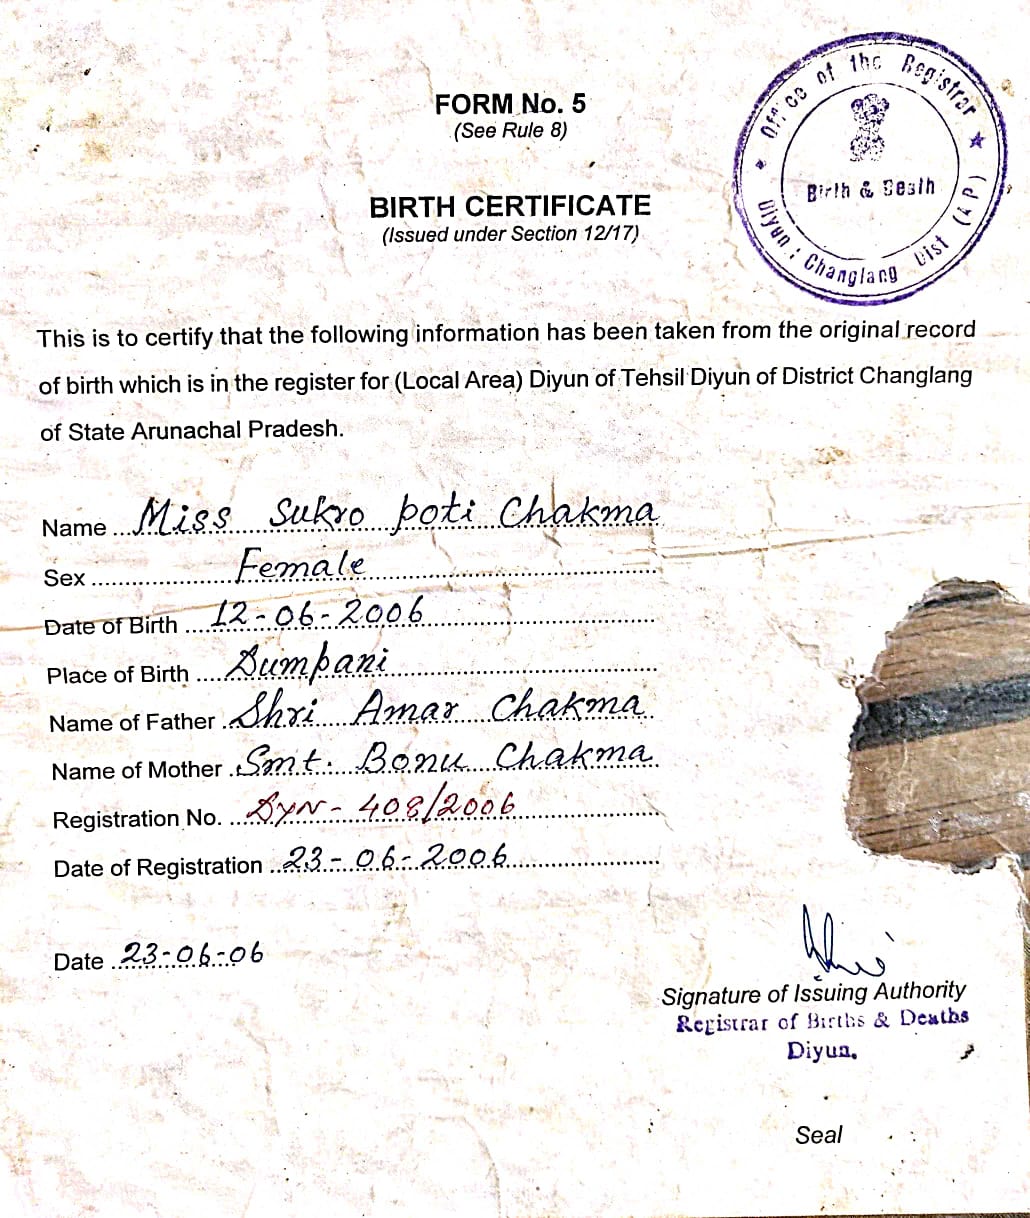 FORM No. 5
(See Rule 8)
Office of the Registrar
Birth & Death
Diyun : Changlang Dist (A P)
BIRTH CERTIFICATE
(Issued under Section 12/17)
This is to certify that the following information has been taken from the original record
of birth which is in the register for (Local Area) Diyun of Tehsil Diyun of District Changlang
of State Arunachal Pradesh.
Name ... Miss Sukro poti Chakma
Sex ... Female
Date of Birth ... 12-06-2006
Place of Birth ... Dumpani
Name of Father ... Shri Amar Chakma
Name of Mother ... Smt. Bonu Chakma
Registration No. ... DYN-408/2006
Date of Registration ... 23-06-2006
Date ... 23-06-06
Signature of Issuing Authority
Registrar of Births & Deaths
Diyun.
Seal